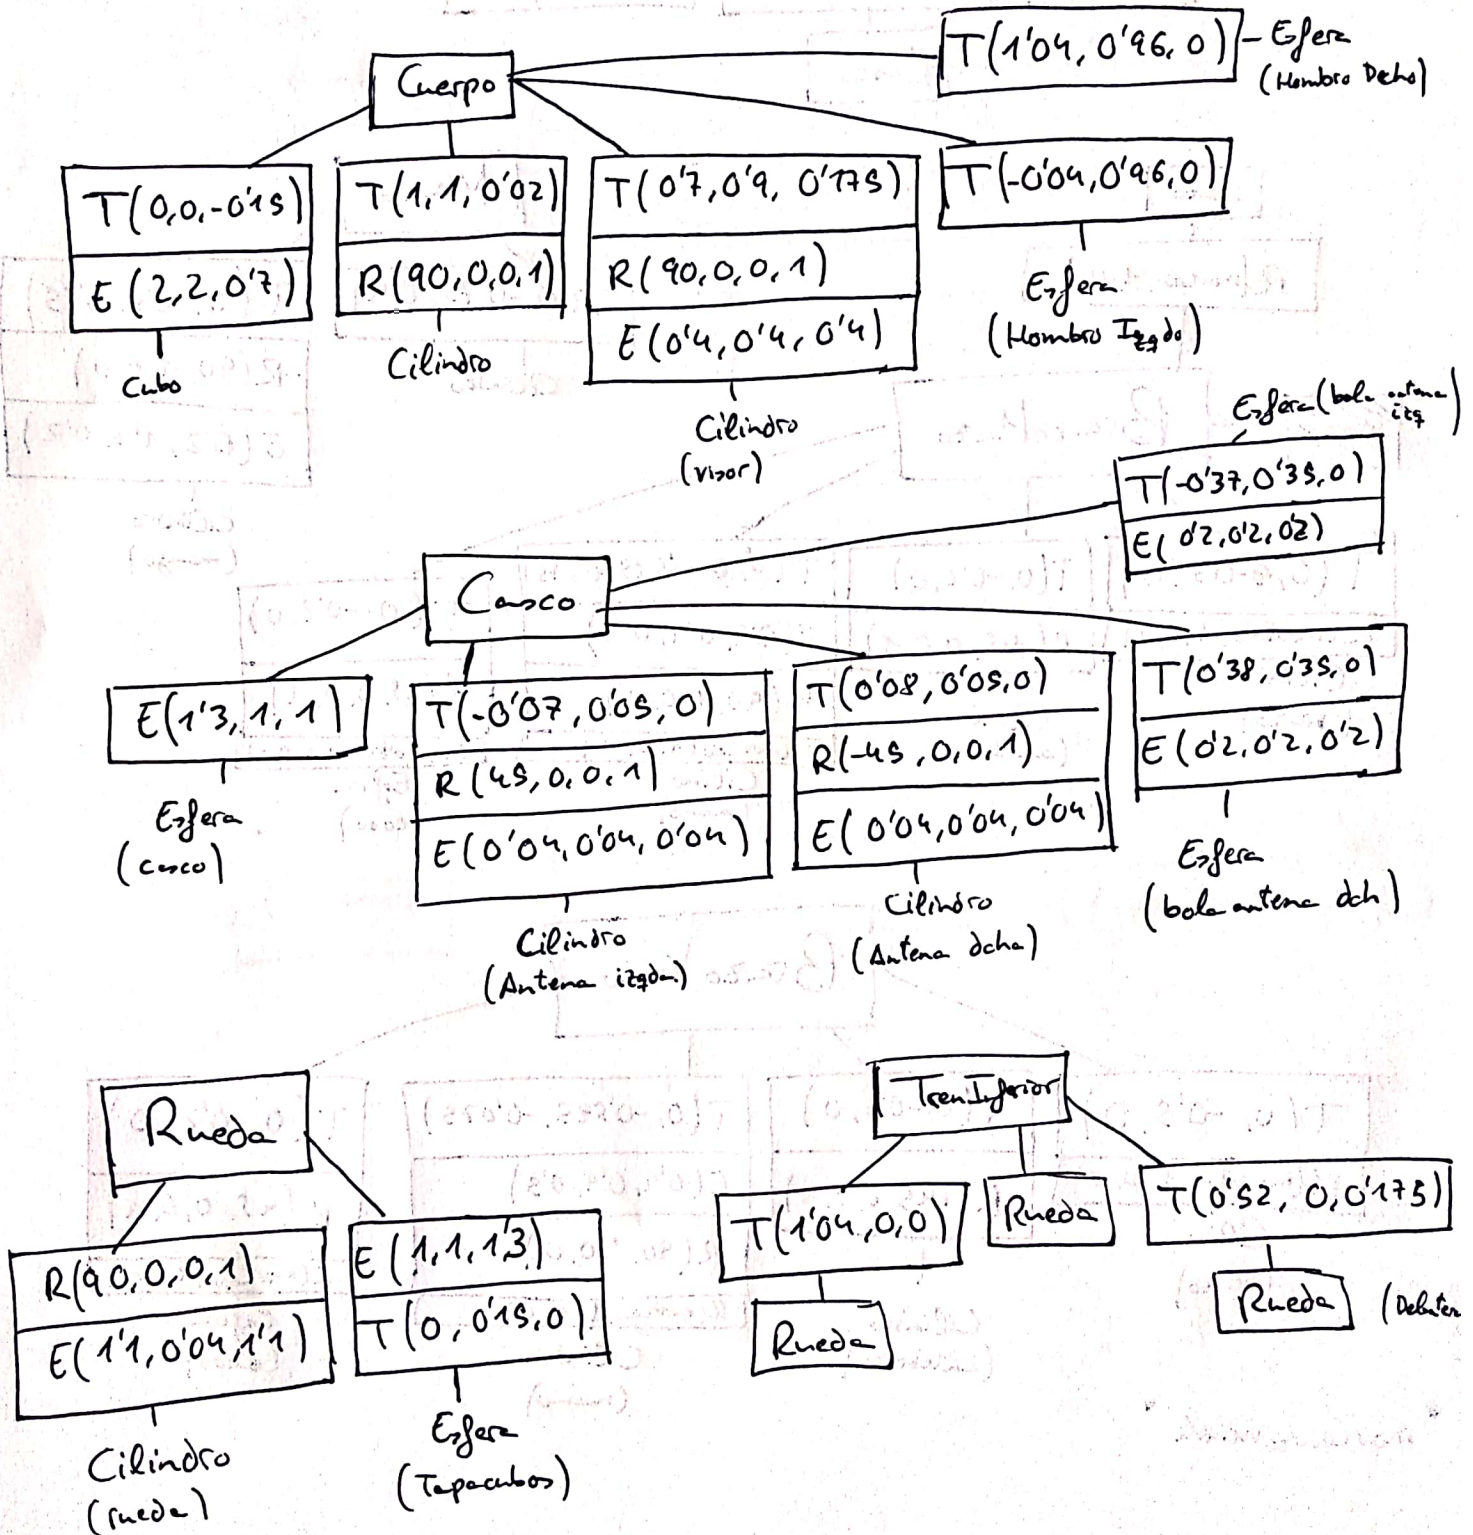 T(1'04, 0'96, 0)
Esfera
(Hombro Dcho)
Cuerpo
T(0,0,-0'15)
E(2,2,0'7)
Cubo
T(1,1,0'02)
R(90,0,0,1)
Cilindro
T(0'7,0'9, 0'175)
R(90,0,0,1)
E(0'4,0'4,0'4)
Cilindro
(visor)
T(-0'04,0'96,0)
Esfera
(Hombro Izqdo)
Esfera (bola antena
izq)
T(-0'37,0'35,0)
E(0'2,0'2,0'2)
Casco
E(1'3,1,1)
Esfera
(casco)
T(-0'07,0'05,0)
R(45,0,0,1)
E(0'04,0'04,0'04)
Cilindro
(Antena izqda)
T(0'08,0'05,0)
R(-45,0,0,1)
E(0'04,0'04,0'04)
Cilindro
(Antena dcha)
T(0'38,0'35,0)
E(0'2,0'2,0'2)
Esfera
(bola antena dch)
Rueda
R(90,0,0,1)
E(1'1,0'04,1'1)
Cilindro
(rueda)
E(1,1,1'3)
T(0,0'15,0)
Esfera
(Tapacubos)
TrenInferior
T(1'04,0,0)
Rueda
Rueda
T(0'52, 0,0'175)
Rueda